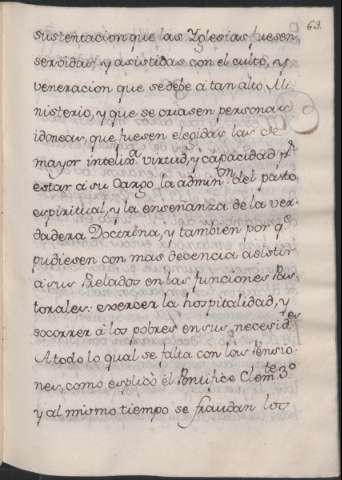 63.
sustentacion que las Yglesias fuesen
servidas, y asistidas con el culto, y
veneracion que se debe a tan alto Mi
nisterio, y que se criasen personas
idoneas, que fuesen elegidas las de
mayor intelig.a virtud, y capacidad p.r
estar à su cargo la admin.on del pasto
espiritual, y la enseñanza de la ver-
dadera Doctrina, y tambien por q.e
pudiesen con mas decencia asistir
à sus Prelados en las funciones Pas-
torales: exercer la hospitalidad, y
socorrer à los pobres en sus necesid.es
A todo lo qual se falta con las Pensio-
nes, como esplicò el Pontifice Clem.te 3.o
y al mismo tiempo se fraudan los